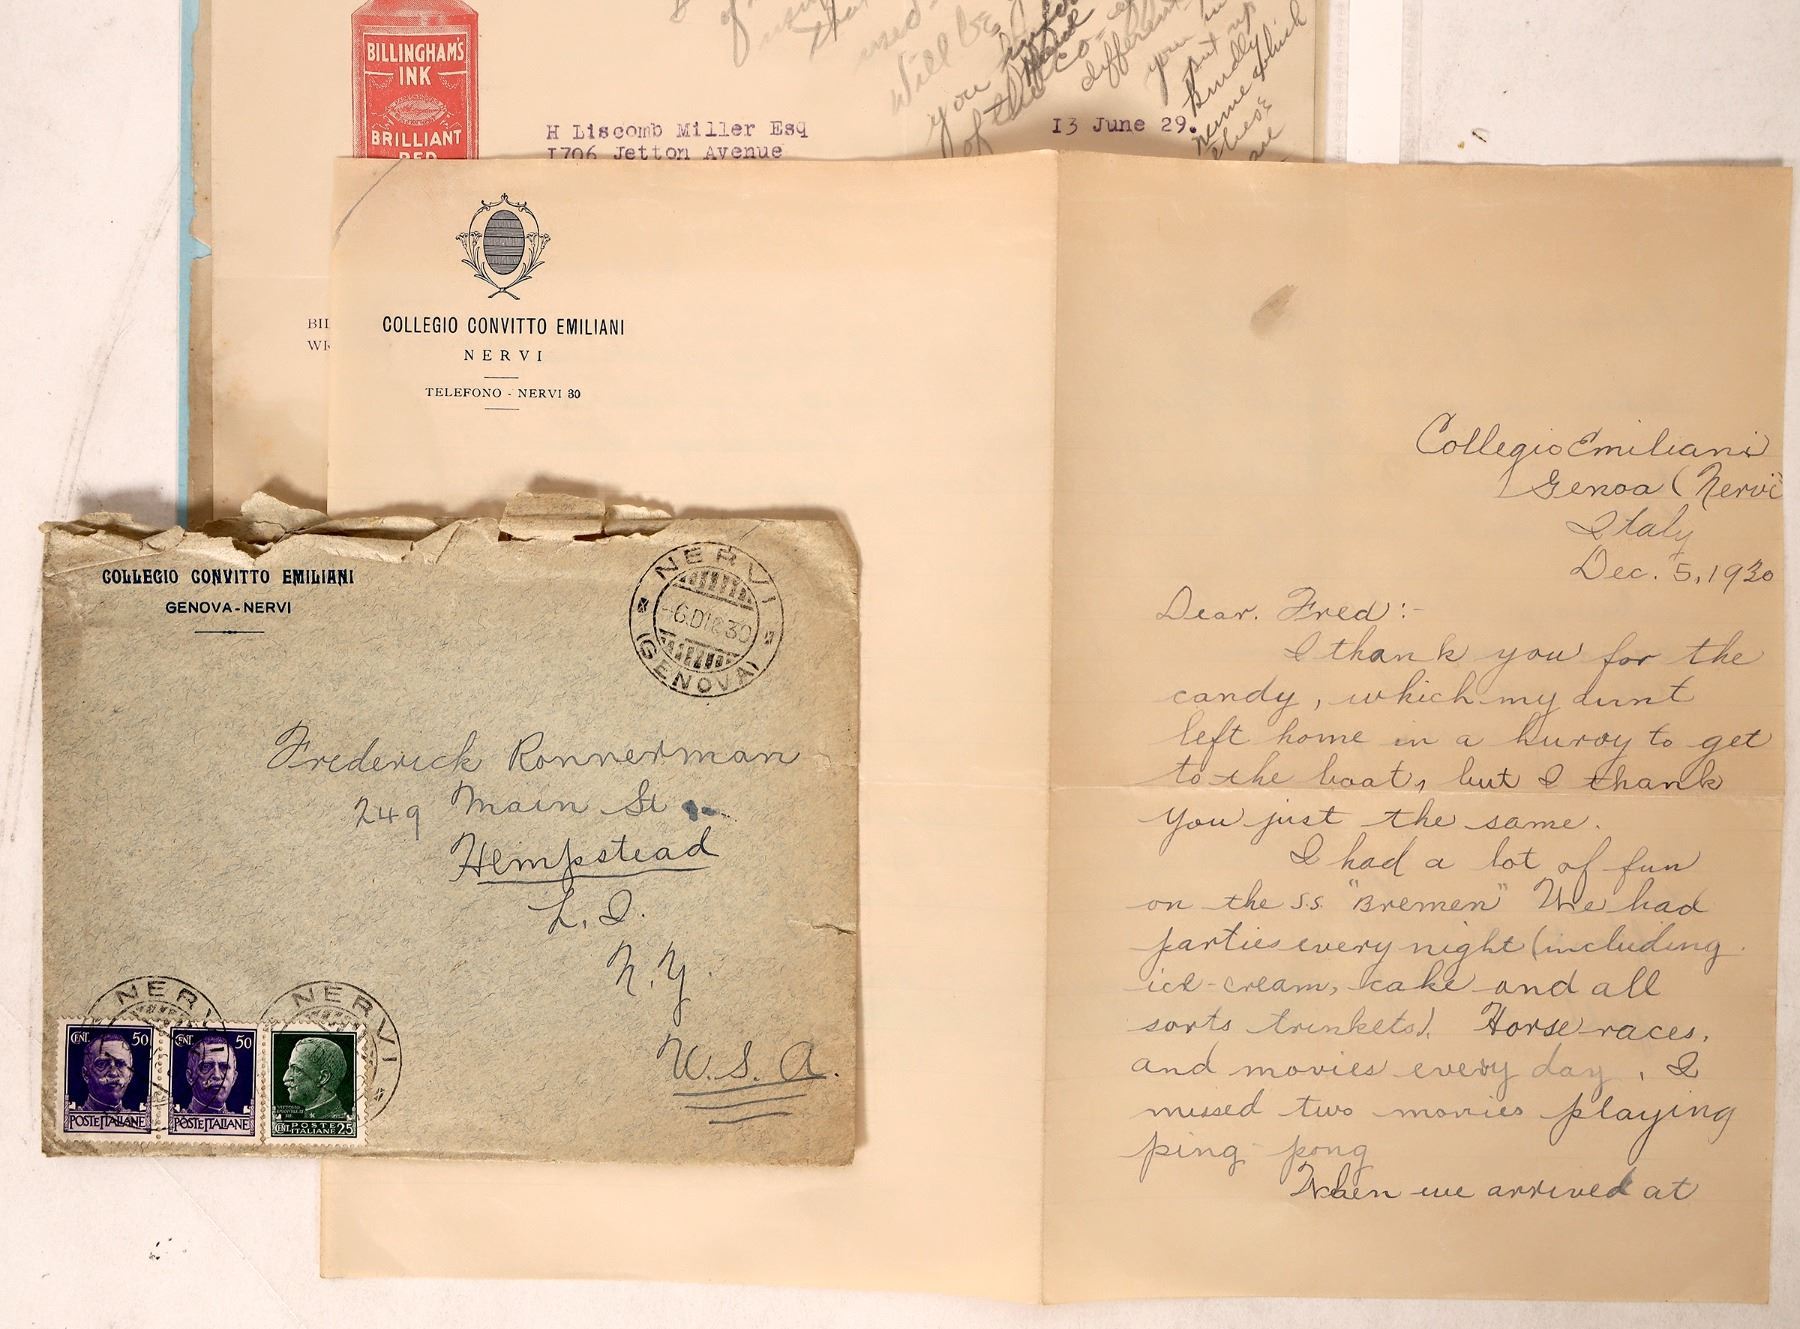 BILLINGHAM'S
INK
BRILLIANT
RED
H Liscomb Miller Esq
1706 Jetton Avenue
13 June 29.
will be
you
of the Co-
different
your
put up
kindly
COLLEGIO CONVITTO EMILIANI
NERVI
TELEFONO - NERVI 30
COLLEGIO CONVITTO EMILIANI
GENOVA-NERVI
NERVI
-6.DIC 30
(GENOVA)
Frederick Ronnerman
249 Main St
Hempstead
L. I.
N. Y.
U. S. A.
NERVI
NERVI
CENT. 50
POSTE ITALIANE
CENT. 50
POSTE ITALIANE
CENT POSTE ITALIANE 25
Collegio Emiliani
Genoa (Nervi
Italy
Dec. 5, 1930
Dear. Fred:-
I thank you for the
candy, which my aunt
left home in a hurry to get
to the boat, but I thank
you just the same.
I had a lot of fun
on the S.S. "Bremen" We had
parties every night (including
ice-cream, cake and all
sorts trinkets). Horse-races,
and movies every day. I
missed two movies playing
ping-pong
When we arrived at